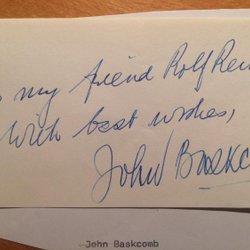 my friend Rolf
With best wishes,
John Baskc
John Baskcomb